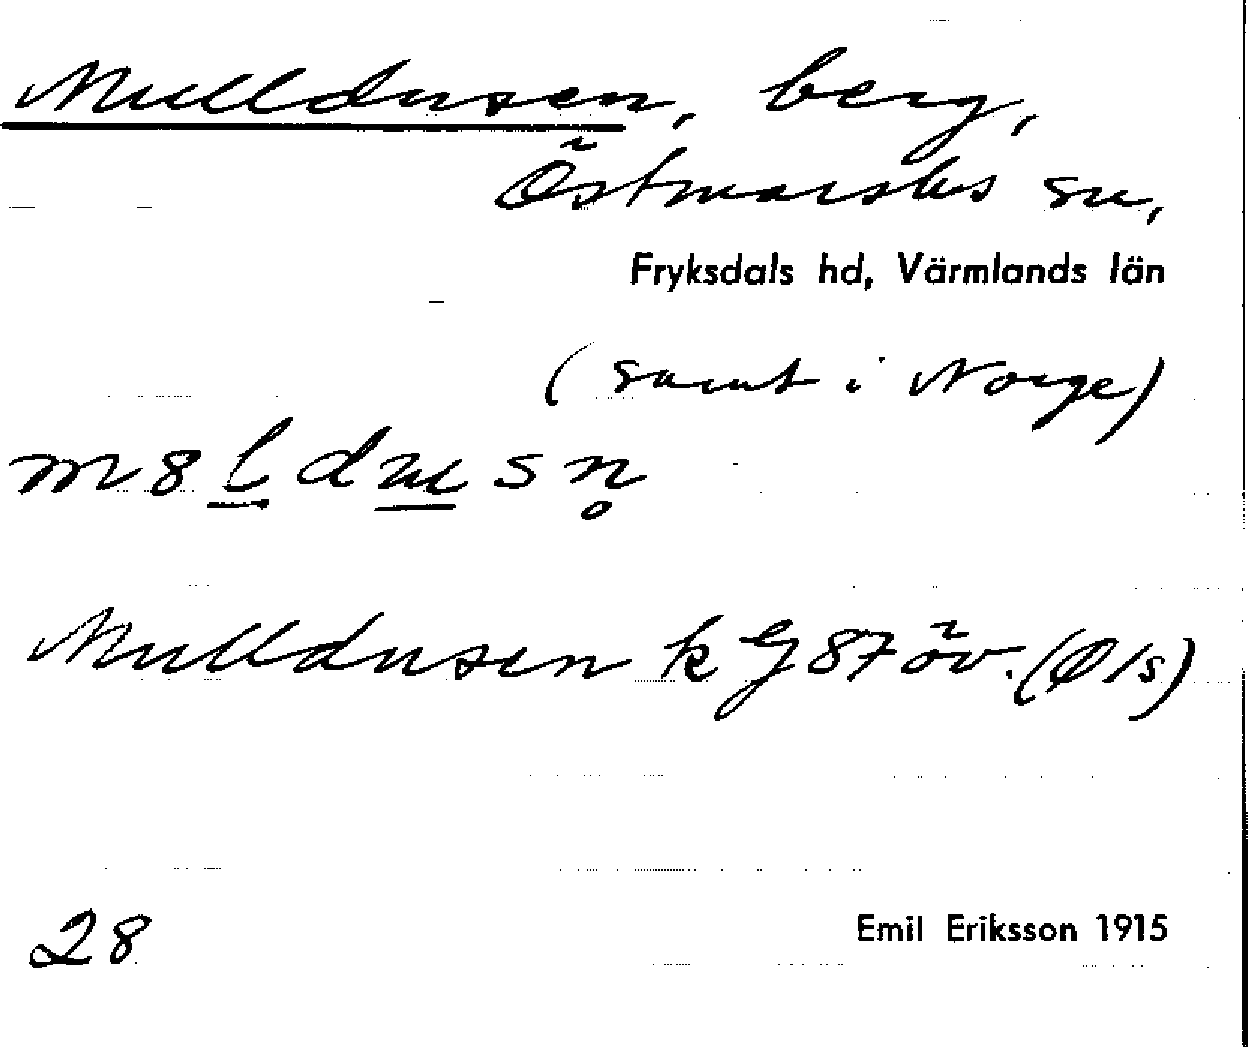 Mulldusen, berg,
Östmarks sn,
Fryksdals hd, Värmlands län
(samt i Norge)
m8l̠dɯ̠sn̥
Mulldusen k G 87 öv. (Ø/s)
28
Emil Eriksson 1915